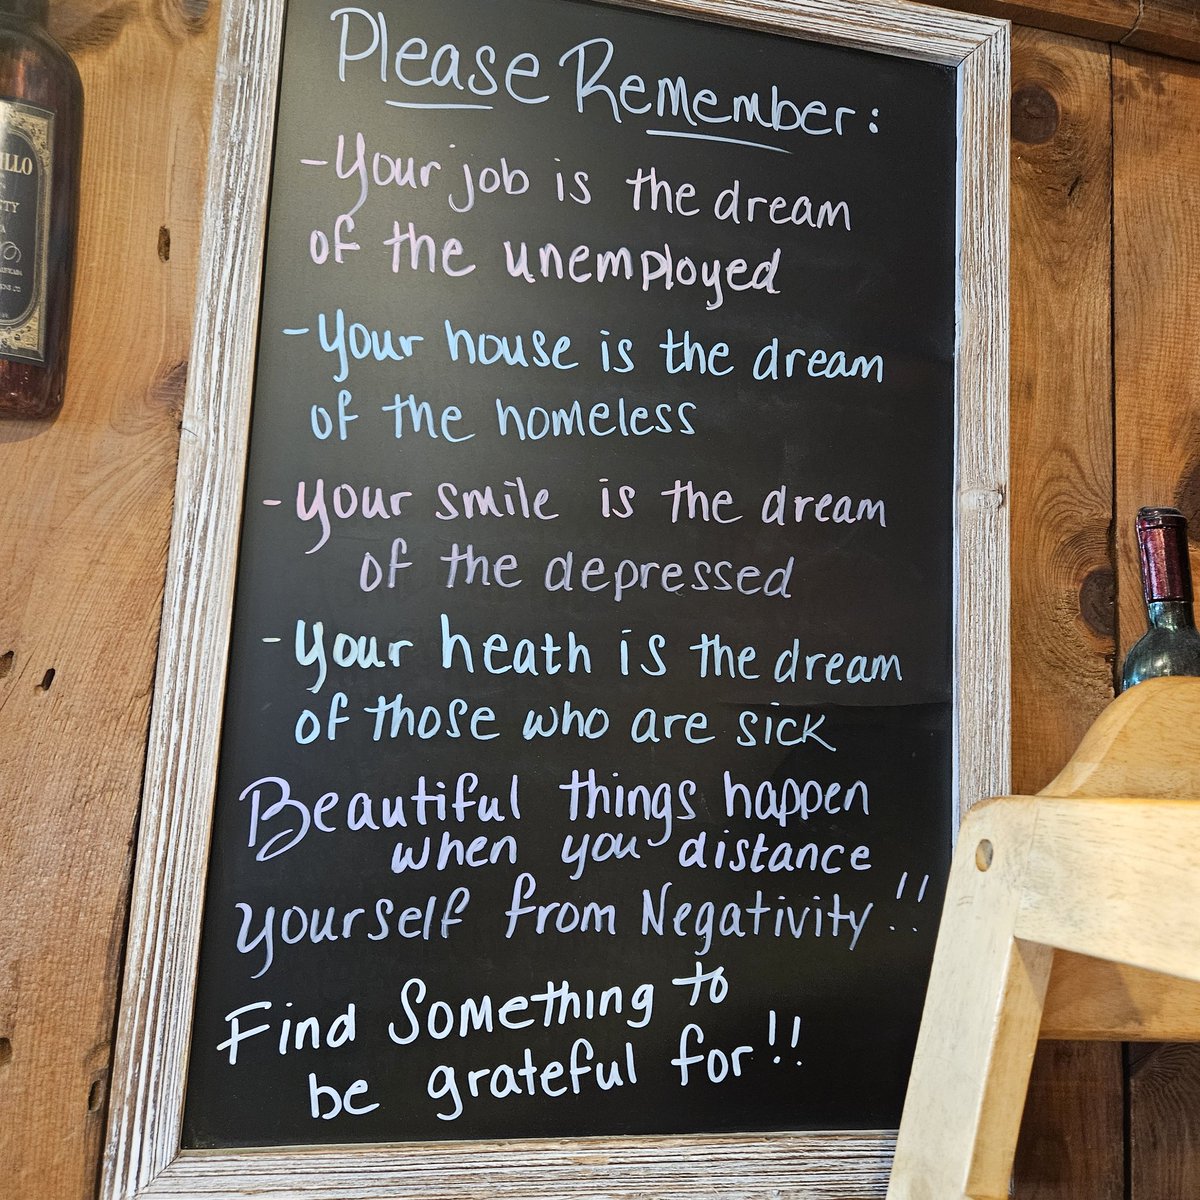 Please Remember:
- Your job is the dream
of the unemployed
- Your house is the dream
of the homeless
- Your smile is the dream
of the depressed
- Your heath is the dream
of those who are sick
Beautiful things happen
when you distance
yourself from Negativity!!
Find Something to
be grateful for!!